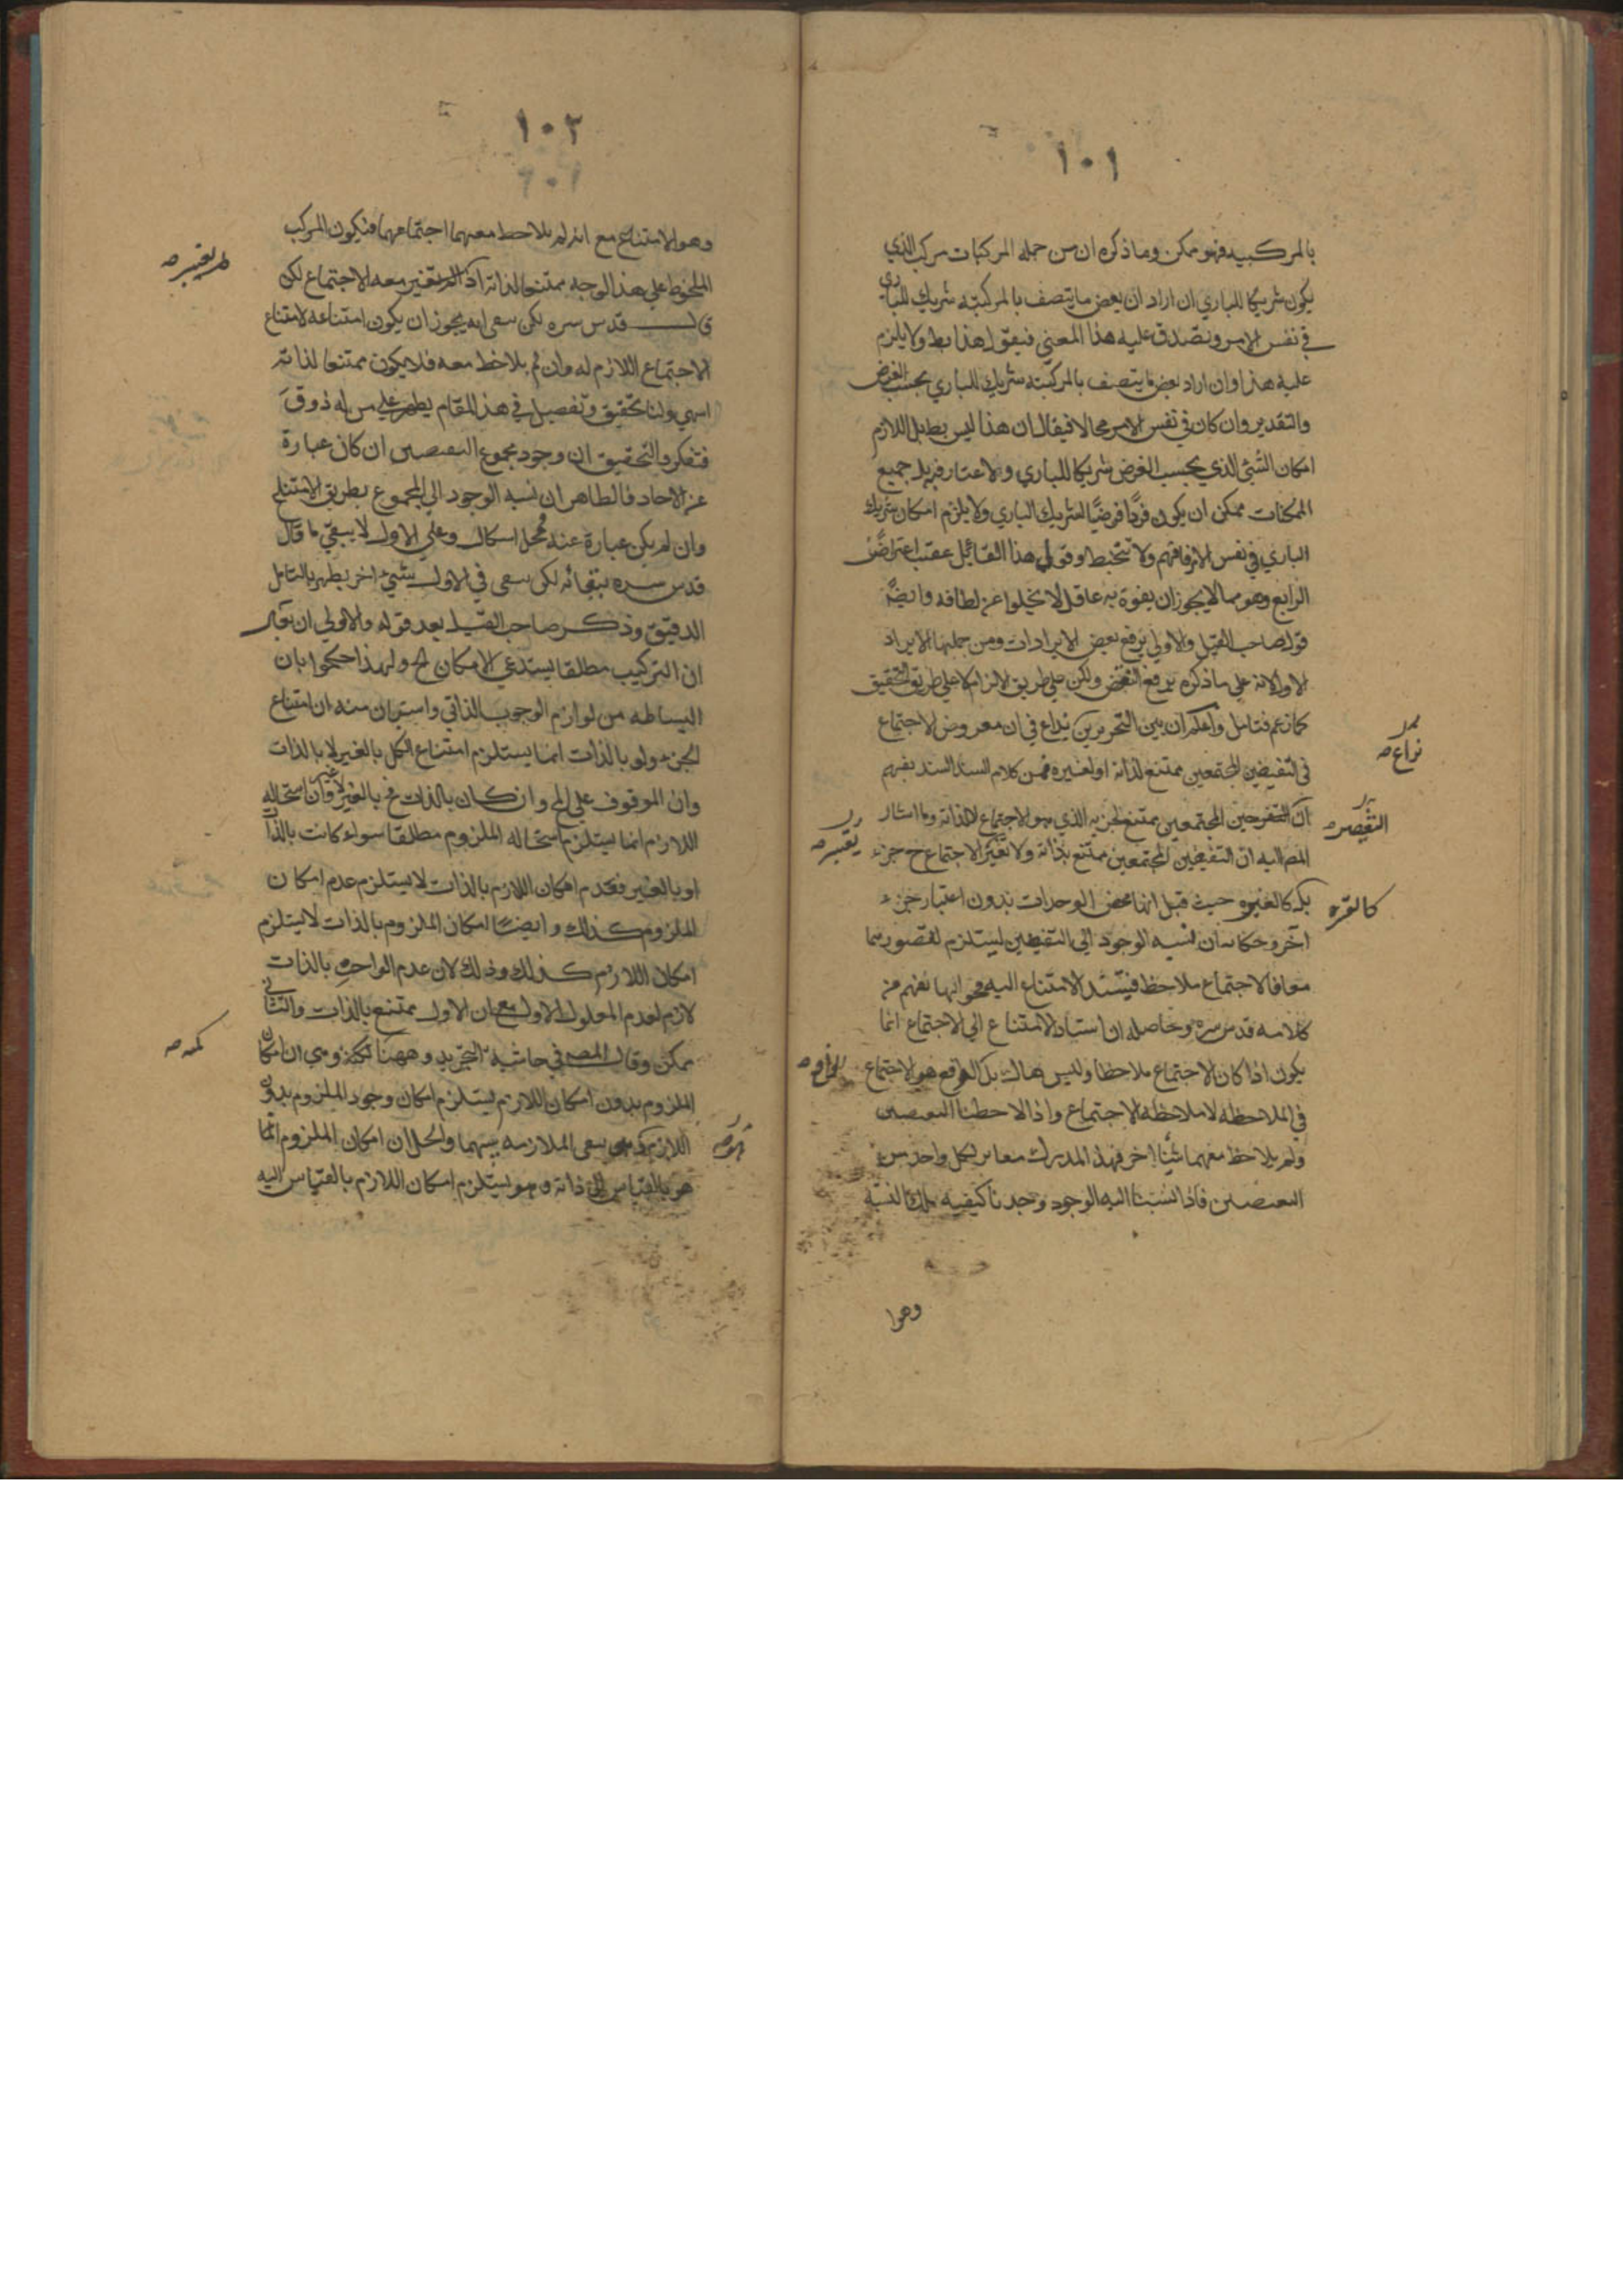 ١٠١
بالمركبيه فهو ممكن وما ذكره ان من جمله المركبات مركب الذي
يكون شريكا للباري ان اراد ان بعض ما يتصف بالمركبيه شريك للباري
في نفس الامر ويصدق عليه هذا المعني فيقول هذا بط ولا يلزم
عليه هذا وان اراد بعض ما يتصف بالمركبيه شريك للباري بحسب الفرض
والتقدير وان كان في نفس الامر محالا فيقال ان هذا ليس بطبل اللازم
امكان الشئ الذي بحسب الفرض شريكا للباري ولا اعتار فيه بل جميع
الممكنات ممكن ان يكون فردا فرضيا لشريك الباري ولا يلزم امكان شريك
الباري في نفس الامر فافهم ولا تتخبط وقول هذا القائل عقب اعتراض
الرابع وهو مما لا يجوز ان يفوه به عاقل لا يخلوا عن لطافه وايضا
قول صاحب القيل والاولي يرفع بعض الايرادات ومن جملتها الايراد
الاول لانه علي ما ذكره يرفع النقض ولكن علي طريق الالزام لا علي طريق التحقيق
كما زعم فتامل واعلم ان بين التحريرين نداع في ان معروض الاجتماع
نزاع صه
في النقيضين المجتمعين ممتنع لذاته او لغيره فمن كلام السند السند يفهم
ان المتفرحين المجتمعين ممتنع لجزيه الذي هو الاجتماع لا لذاته وما اشار
المص اليه ان النقيضين المجتمعين ممتنع بذاته ولا تغير الاجتماع ح جزء
يعتبر صه
بل كالغيره حيث قيل انها محض الوحدات بدون اعتبار جزء
كالعشره
آخر وحكما بان نسبه الوجود الي النقيضين يستلزم لتصورهما
معا فالاجتماع ملاحظ فيستند الامتناع اليه فجوابها يفهم من
كلامه قدس سره وحاصله ان استناد الامتناع الي الاجتماع انما
يكون اذا كان الاجتماع ملاحظا وليس هناك بل الواقع هو الاجتماع
في الملاحظه لا ملاحظه الاجتماع واذا لاحظنا النقيضين
ولم يلاحظ معهما شيئا اخر فهذا المدرك مغاير لكل واحد من
النقيضين فاذا نسبنا اليه الوجود وجدنا كيفيه تلك النسبه
وهوا
١٠٢
وهو الامتناع مع انه لم يلاحظ معهما اجتماعهما فيكون المركب
الملحوظ علي هذا الوجه ممتنعا لذاته اذ لم يتغير معه الاجتماع لكن
لم يعتبر صه
قدس سره لكن بقي انه يجوز ان يكون امتناعه لامتناع
الاجتماع اللازم له وان لم يلاحظ معه فلا يكون ممتنعا لذاته
انتهي ولنا تحقيق وتفصيل في هذا المقام يظهر علي من له ذوق
فتفكر والتحقيق ان وجود مجموع النقيضين ان كان عبارة
عن الاحاد فالظاهر ان نسبه الوجود الي المجموع بطريق الامتناع
وان لم يكن عبارة عنه فمحل اشكال وعلي الاول لا يبقي ما قال
قدس سره بتمامه لكن بقي في الاول شئ اخر يظهر بالتامل
الدقيق وذكر صاحب القيل بعد قوله والاولي ان يقال
ان التركيب مطلقا يستدعي الامكان الخ ولهذا حكموا بان
البساطه من لوازم الوجوب الذاتي واستبان منه ان امتناع
الجزء ولو بالذات انما يستلزم امتناع الكل بالغير لا بالذات
وان الموقوف علي المح وان كان بالذات مح بالغير لا غير وان استحاله
اللازم انما يستلزم استحاله الملزوم مطلقا سواء كانت بالذات
او بالغير فعدم امكان اللازم بالذات لا يستلزم عدم امكان
الملزوم كذلك وايضا امكان الملزوم بالذات لا يستلزم
امكان اللازم كذلك وذلك لان عدم الواجب بالذات
لازم لعدم المعلول الاول مع ان الاول ممتنع بالذات والثاني
ممكن وقال المص في حاشيه التجريد وههنا نكته وهي ان امكان
الملزوم بدون امكان اللازم يستلزم امكان وجود الملزوم بدون
اللازم بقي الملازمه بينهما والحل ان امكان الملزوم انما
هو بالقياس الي ذاته وهو يستلزم امكان اللازم بالقياس اليه